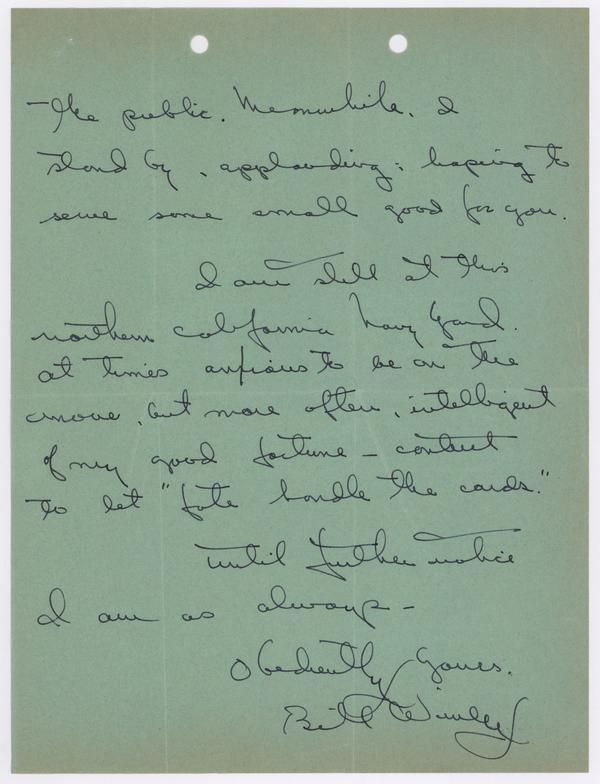 — the public. Meanwhile, I
stand by, applauding; hoping to
serve some small good for you.
I am still at this
northern California Navy Yard.
at times anxious to be on the
move, but more often, intelligent
of my good fortune — content
to let "fate handle the cards."
until further notice
I am as always —
Obediently Yours.
Bill